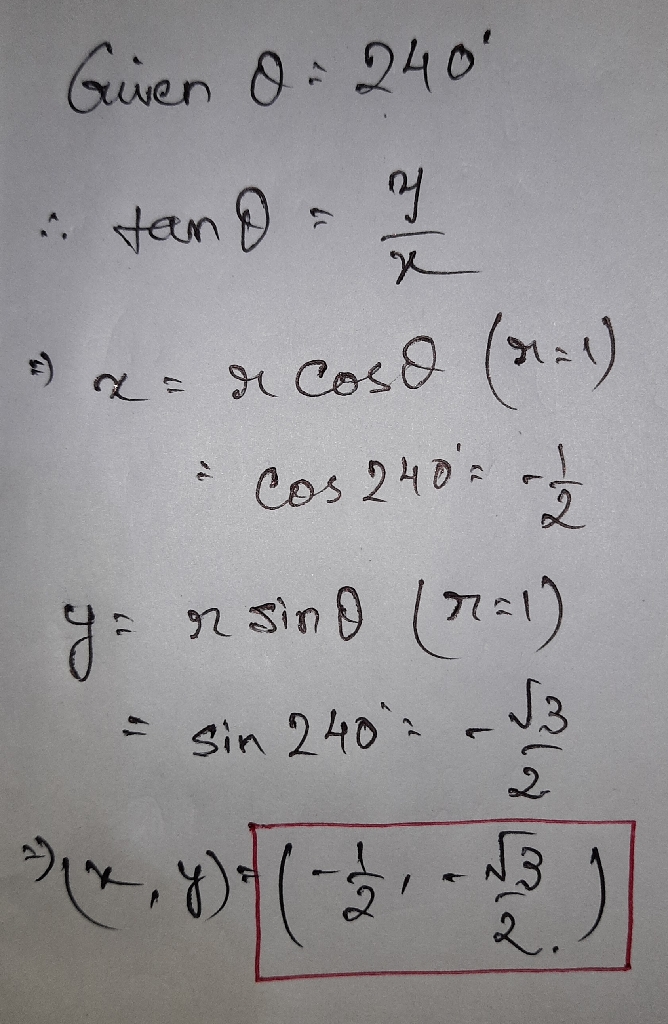 Given θ = 240°
∴ tan θ = y/x
⇒ x = r cos θ (r=1)
= cos 240° = -1/2
y = r sin θ (r=1)
= sin 240° = -√3/2
⇒ (x, y) = (-1/2, -√3/2.)